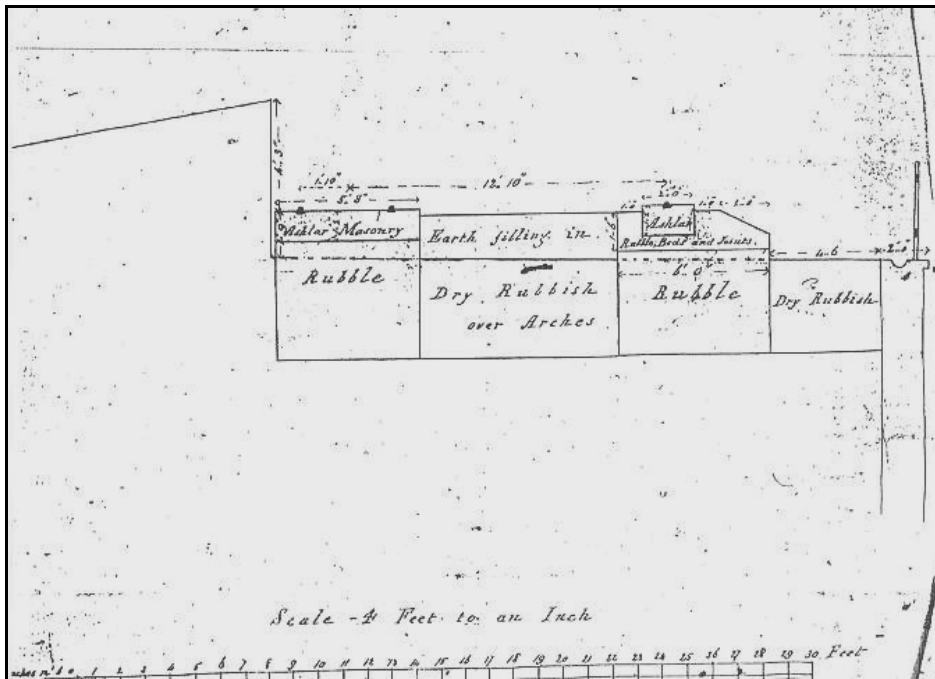 4'. 3"
1'. 10"
12'. 10"
5'. 8"
2'. 0"
1. 0
1. 0
Ashlar Masonry
Earth filling in
Ashlar
Rubble, Beds and Joints.
4. 6
2. 0
Rubble
Dry Rubbish
over Arches
6'. 0"
Rubble
Dry Rubbish
Scale - 4 Feet to an Inch
0 1 2 3 4 5 6 7 8 9 10 11 12 13 14 15 16 17 18 19 20 21 22 23 24 25 26 27 28 29 30 Feet